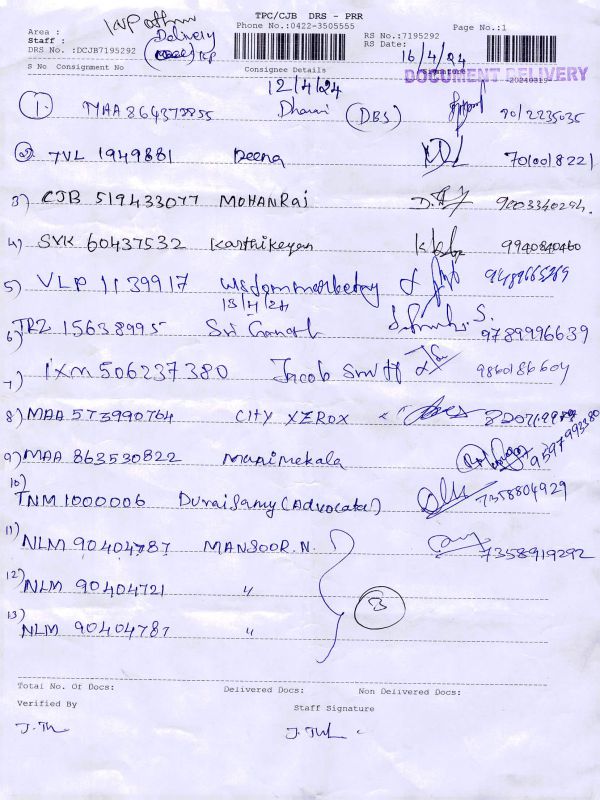 TPC/CJB DRS - PRR
Phone No.:0422-3505555
Area :
Staff :
DRS No. :DCJB7195292
Delivery
RS No.:7195292
RS Date:
16/4/24
Page No.:1
Signature
DOCUMENT DELIVERY
-20240319-
S No Consignment No
Consignee Details
12/4/24
1. MAA 864373855 Dharani (DBS) 9012235035
2) TVL 1949881 Deena 7010018221
3) CJB 519433077 MOHANRAJ 9003340294
4) SVK 60437532 Karthikeyan 9940840460
5) VLP 1139917 Wisdom marketing 9489665369
13/4/24
6) TRZ 15638995 Sri Ganesh 9789996639
7) IXM 506237380 Jacob Smith 9860186604
8) MAA 573990764 CITY XEROX
9) MAA 863530822 Manimekala 9597993380
10) TNM 1000006 Duraisamy (Advocate) 7358804929
11) NLM 90404787 MANSOOR.N. 7358919292
12) NLM 90404721 "
13) NLM 90404787 "
3
Total No. Of Docs: Delivered Docs: Non Delivered Docs:
Verified By
Staff Signature